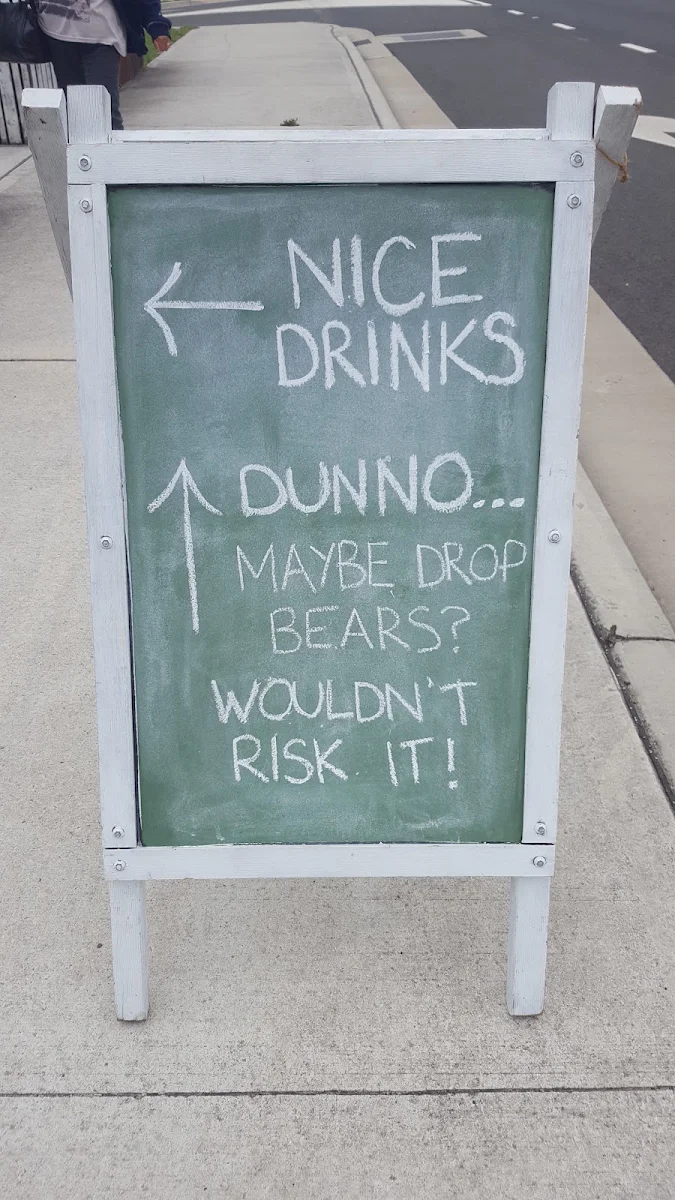 ← NICE
DRINKS
↑ DUNNO...
MAYBE DROP
BEARS?
WOULDN'T
RISK IT!